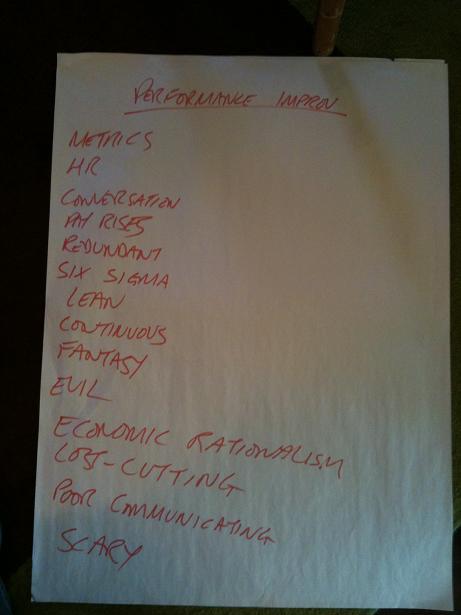 PERFORMANCE IMPROV
METRICS
HR
CONVERSATION
PAY RISES
REDUNDANT
SIX SIGMA
LEAN
CONTINUOUS
FANTASY
EVIL
ECONOMIC RATIONALISM
COST-CUTTING
POOR COMMUNICATING
SCARY